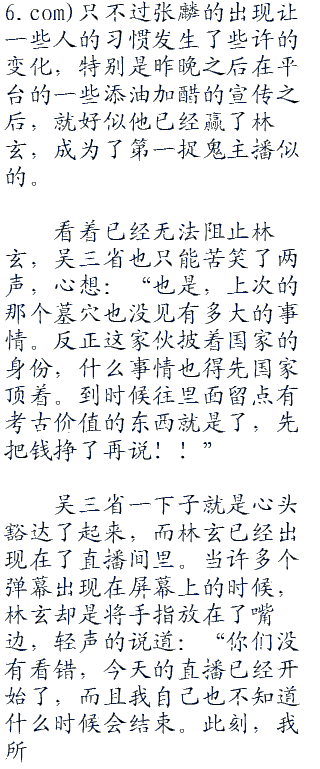 6.com)只不过张麟的出现让
一些人的习惯发生了些许的
变化，特别是昨晚之后在平
台的一些添油加醋的宣传之
后，就好似他已经赢了林
玄，成为了第一捉鬼主播似
的。
看着已经无法阻止林
玄，吴三省也只能苦笑了两
声，心想：“也是，上次的
那个墓穴也没见有多大的事
情。反正这家伙披着国家的
身份，什么事情也得先国家
顶着。到时候往里面留点有
考古价值的东西就是了，先
把钱挣了再说！！”
吴三省一下子就是心头
豁达了起来，而林玄已经出
现在了直播间里。当许多个
弹幕出现在屏幕上的时候，
林玄却是将手指放在了嘴
边，轻声的说道：“你们没
有看错，今天的直播已经开
始了，而且我自己也不知道
什么时候会结束。此刻，我
所